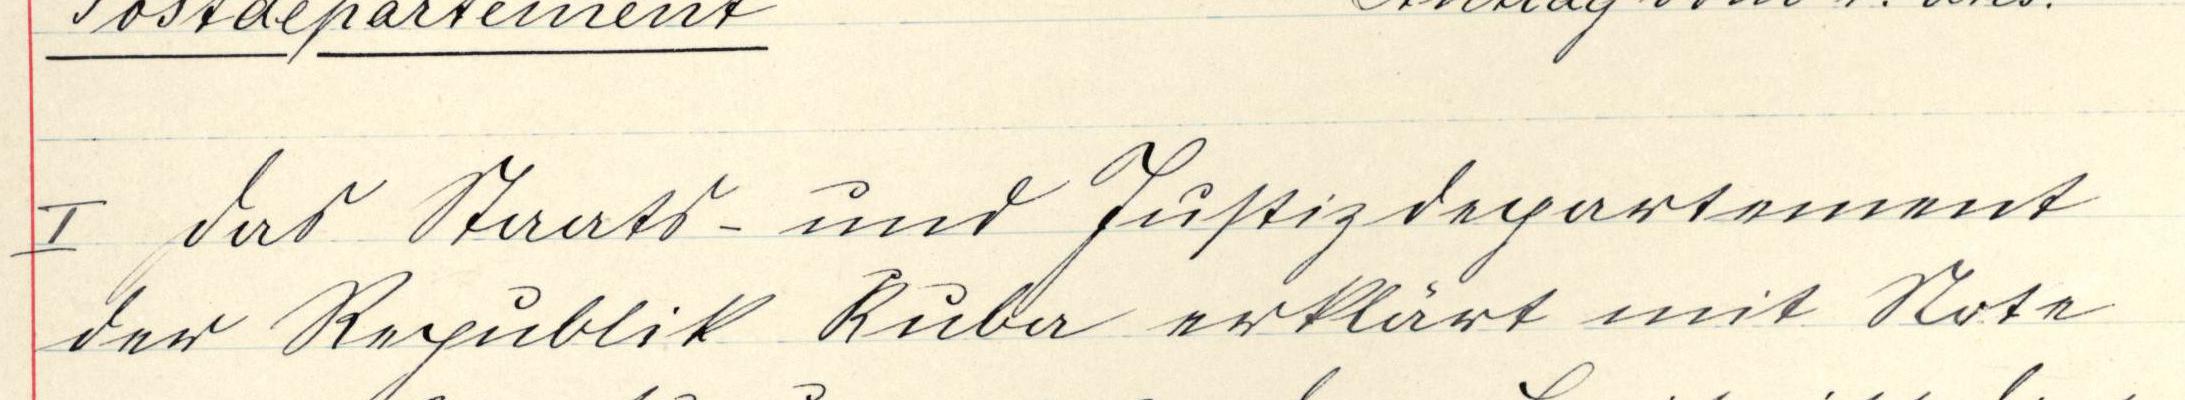 Postdepartement Antrag vom
I das Staats- und Justizdepartement
der Republik Kuba erklärt mit Note